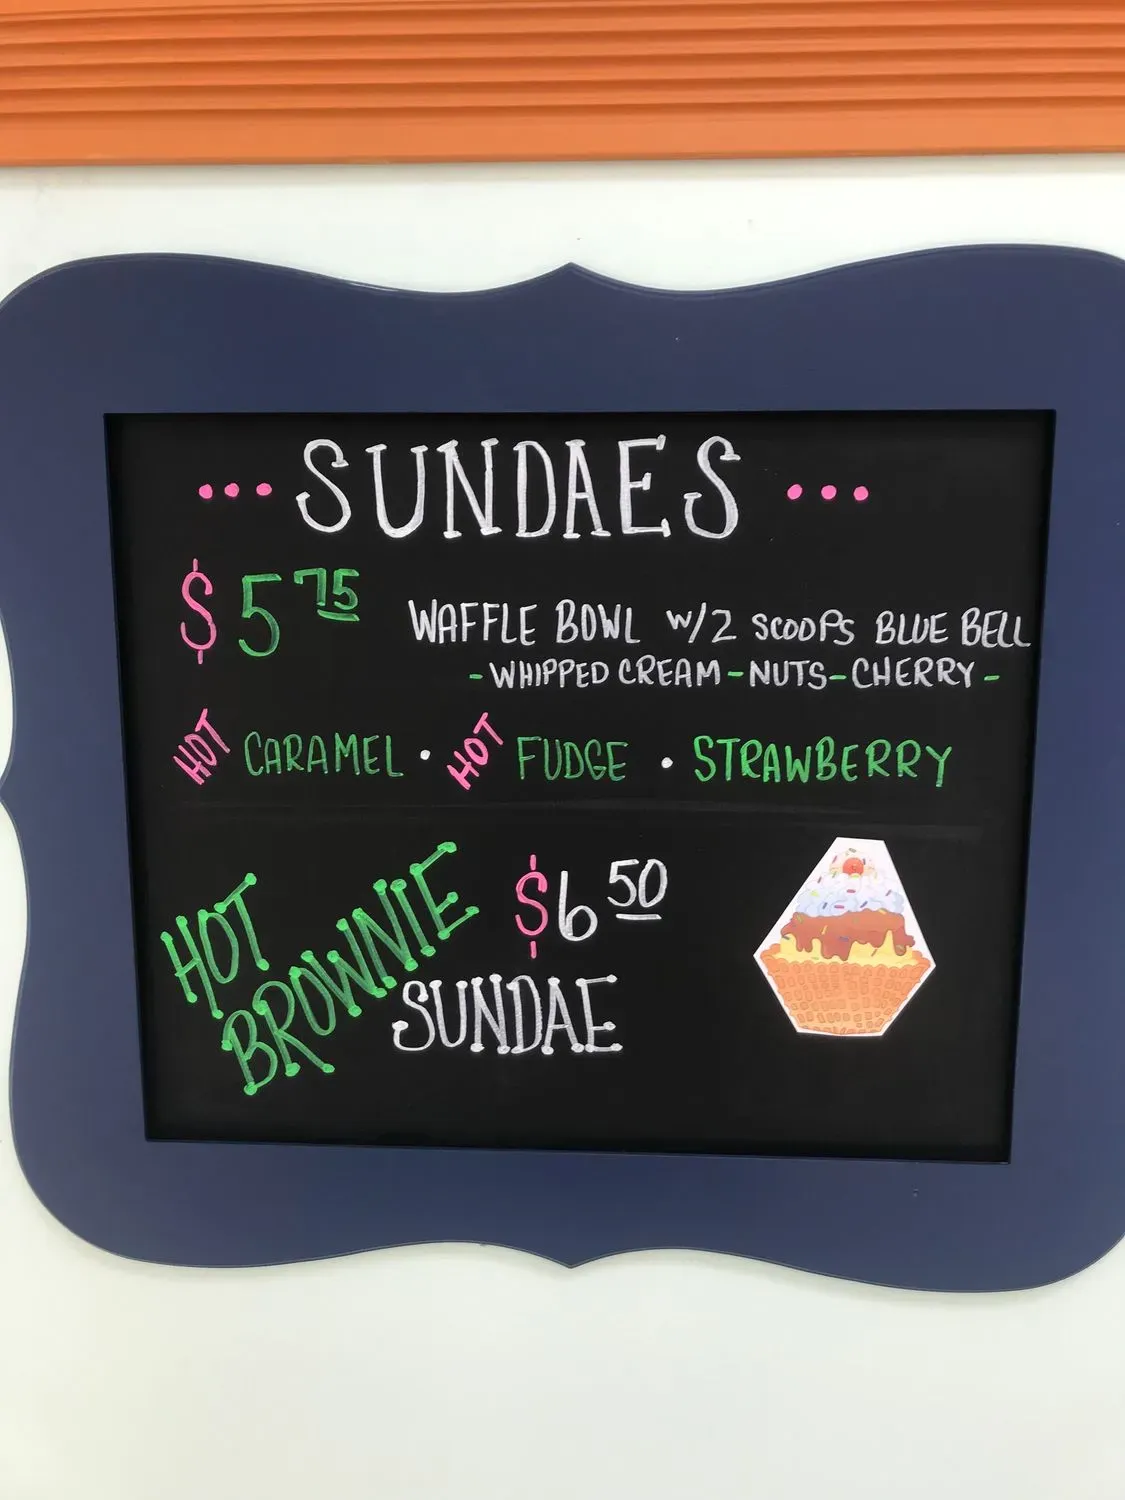 ... SUNDAES ...
$5 75 WAFFLE BOWL w/2 SCOOPS BLUE BELL
- WHIPPED CREAM - NUTS - CHERRY -
HOT CARAMEL · HOT FUDGE · STRAWBERRY
HOT
BROWNIE
$6 50
SUNDAE